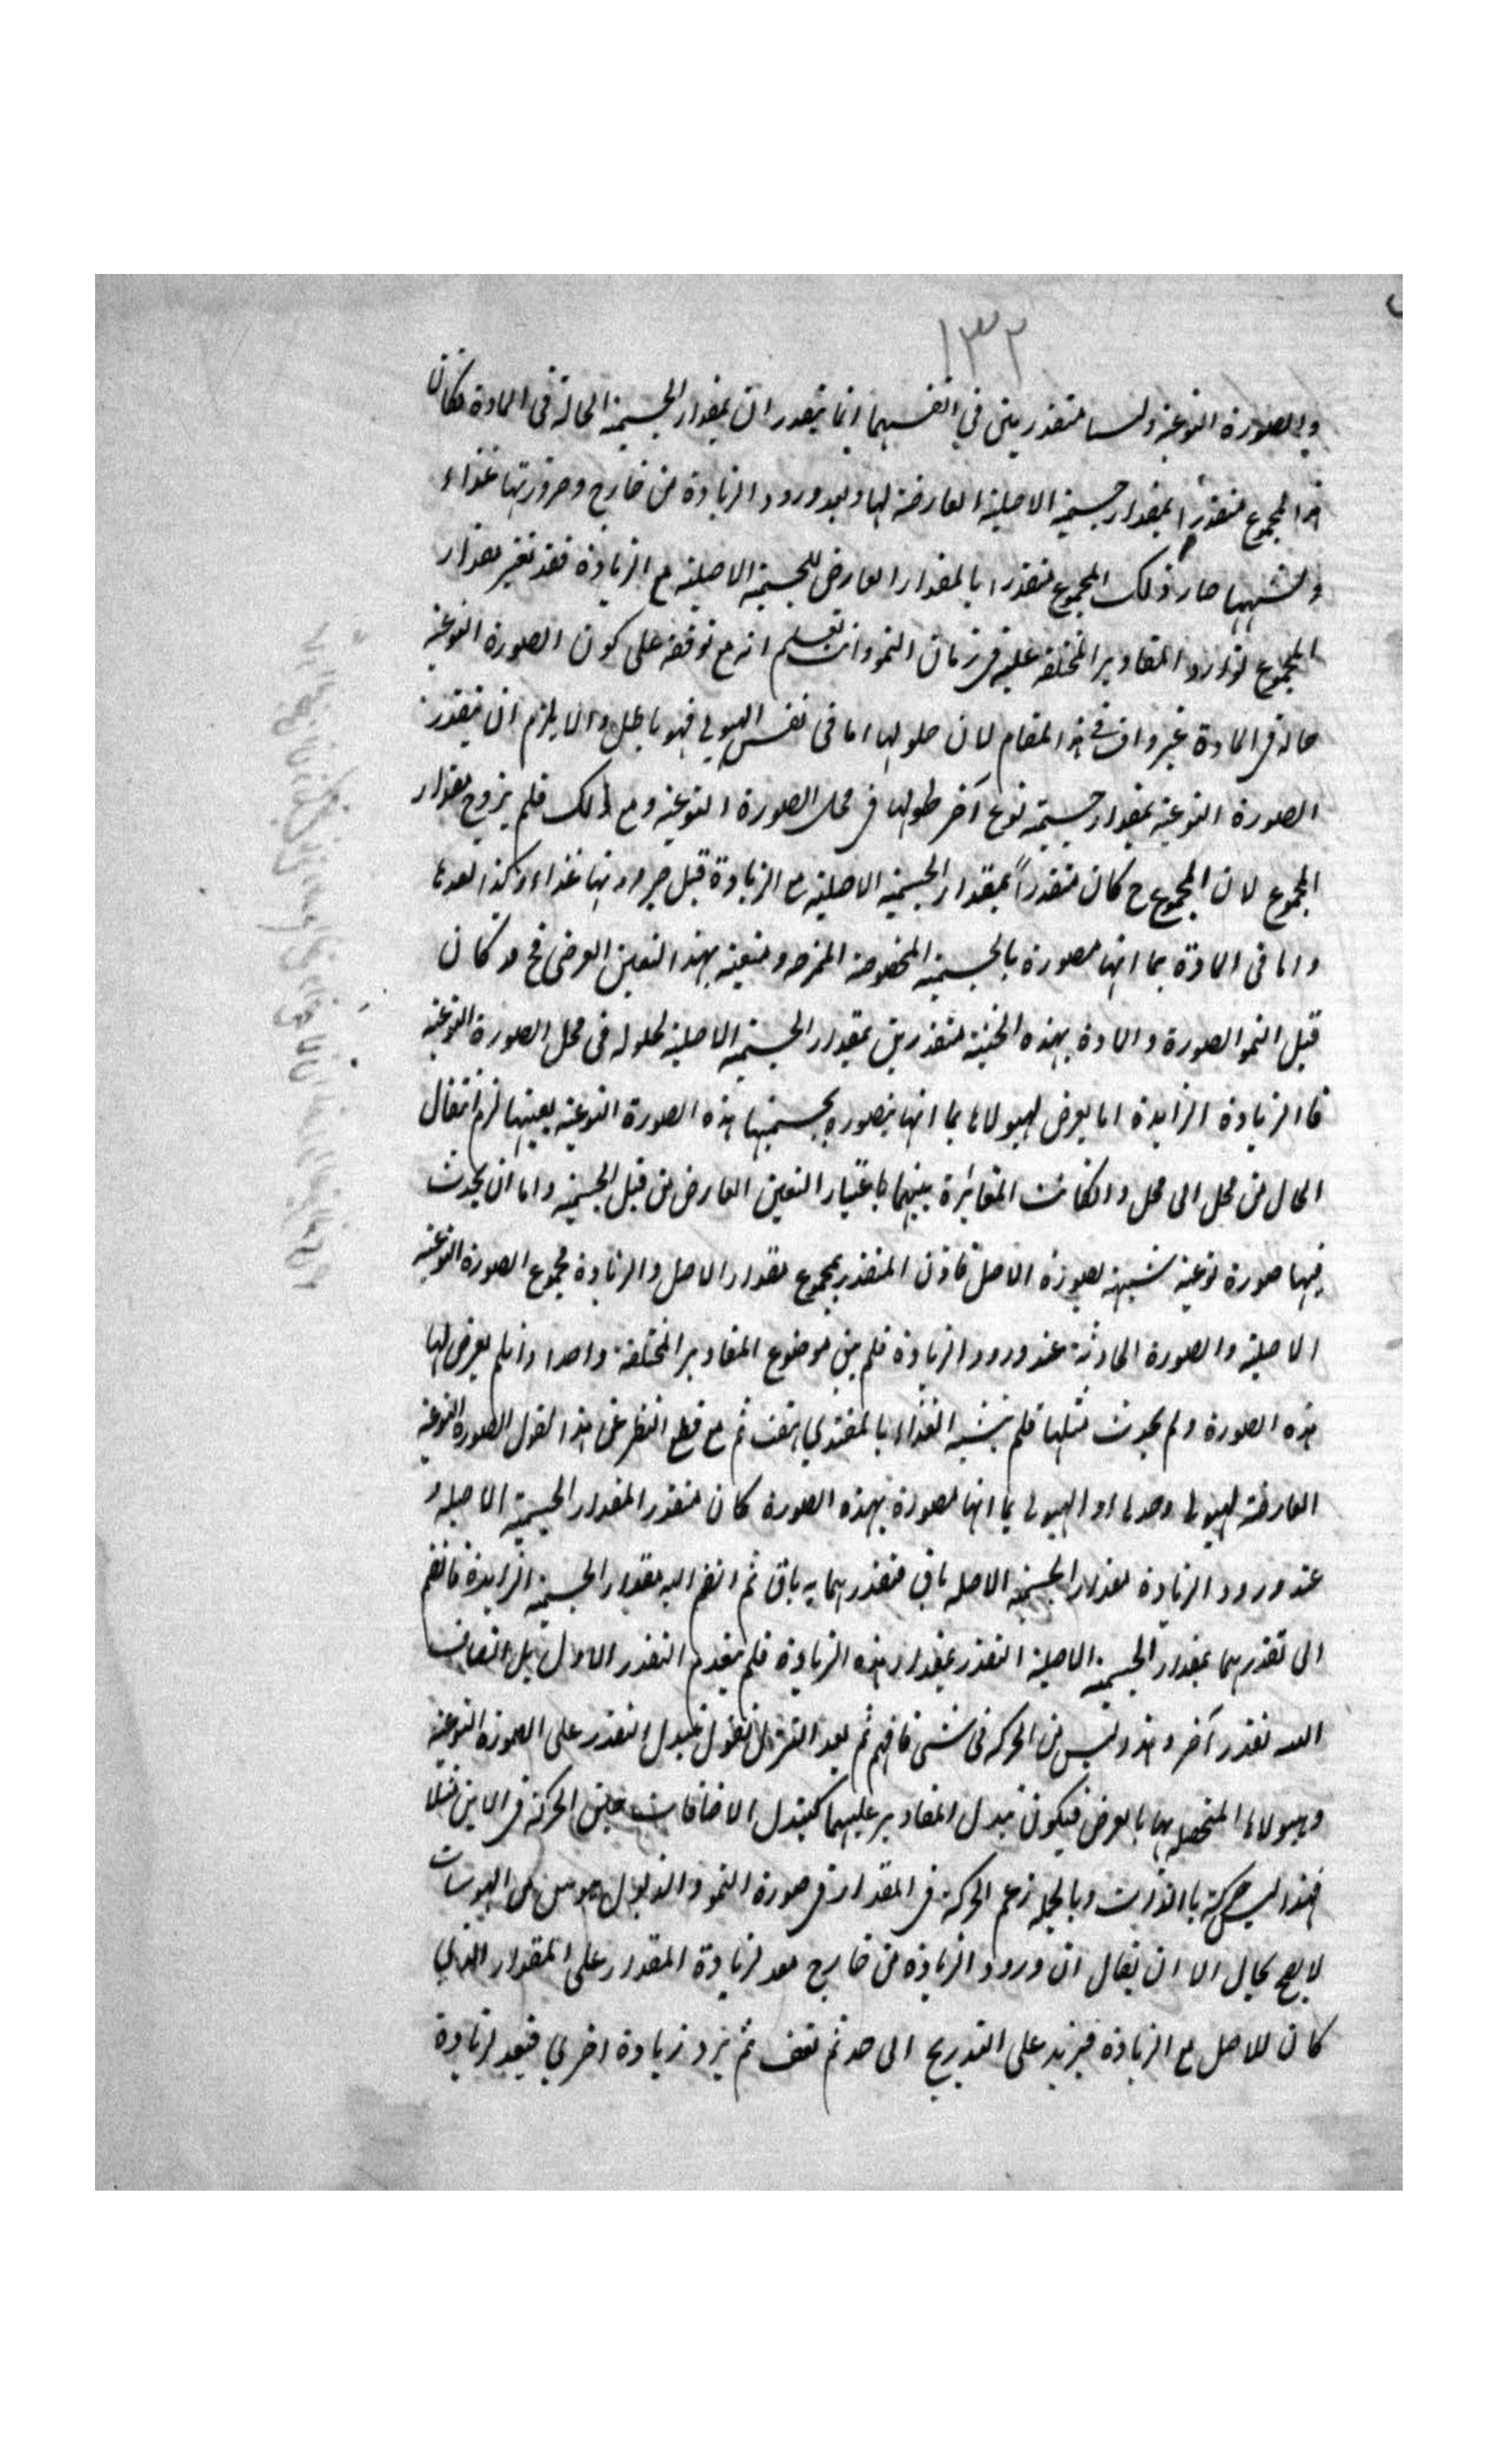 ١٣٢
والصورة النوعية وليستا متقدرتين في انفسهما انما يتقدران بمقدار الجسمية الحالة فى المادة فكان
هذا المجموع متقدرا بمقدار جسمية الاصلية العارضة لها وبعد ورود الزيادة من خارج وصيرورتها غذاء
وتشبهها صار ذلك المجموع متقدرا بالمقدار العارض للجسمية الاصلية مع الزيادة فقد تغير مقدار
المجموع لتوارد المقادير المختلفة عليه فى زمان النمو وانت تعلم انه مع توقفه على كون الصورة النوعية
حالة فى المادة غير واف فى هذا المقام لان حلولها اما فى نفس الهيولى فهو باطل والا يلزم ان يتقدر
الصورة النوعية بمقدار جسمية نوع آخر حلولها فى محل الصورة النوعية ومع ذلك فلم يزوح مقدار
المجموع لان المجموع ح كان متقدراً بمقدار الجسمية الاصلية مع الزيادة قبل صيرورتها غذاء وكذا بعدها
واما فى المادة بما انها مصورة بالجسمية المخصوصة ومتعينة بهذا التعين العرضى فح قد كان
قبل النمو الصورة والمادة بهذه الحيثية متقدرتين بمقدار الجسمية الاصلية لحلوله فى محل الصورة النوعية
فالزيادة الزايدة اما يعرض لهيولاها بما انها متصورة بجسميتها هذه الصورة النوعية بعينها لزم انتقال
الحال من محل الى محل وان كانت المغايرة بينهما باعتبار التعين العارض من قبل الجسمية واما ان يحدث
فيها صورة نوعية شبيهة بصورة الاصل فاذن المتقدر بمجموع مقدار الاصل والزيادة مجموع الصورة النوعية
الاصلية والصورة الحادثة عند ورود الزيادة فلم يبق موضوع المقادير المختلفة واحدا واذا لم يعرض لها
هذه الصورة ولم يحدث مثلها فلم يتشبه الغذاء بالمغتذي هف ثم مع قطع النظر عن هذا نقول الصورة النوعية
العارضة لهيولى وحدها او الهيولى بما انها مصورة بهذه الصورة كان متقدر المقدار الجسمية الاصلية و
عند ورود الزيادة مقدار الجسمية الاصلية باق فتقدرهما به باق ثم انضم اليه مقدار الجسمية الزايدة فانضم
الى تقدرهما بمقدار الجسمية الاصلية التقدر بمقدار هذه الزيادة فلم ينعدم التقدر الاول بل انضاف
اليه تقدر آخر وهذا ليس من الحركة فى شىء فافهم ثم بعد التنزل نقول تبدل التقدر على الصورة النوعية
وهيولاها المتحصلة بها بالعرض فيكون تبدل المقادير عليهما كتبدل الاضافات حين الحركة فى الاين مثلا
فهذا ليس حركة بالذات وبالجملة زعم الحركة فى المقدار فى صورة النمو والذبول هوس من الهوسات
لا يصح بحال الا ان يقال ان ورود الزيادة من خارج معد لزيادة المقدار على المقدار الذي
كان للاصل مع الزيادة فيزيد على التدريج الى حد ثم تقف ثم يزد زيادة اخرى فيعد لزيادة